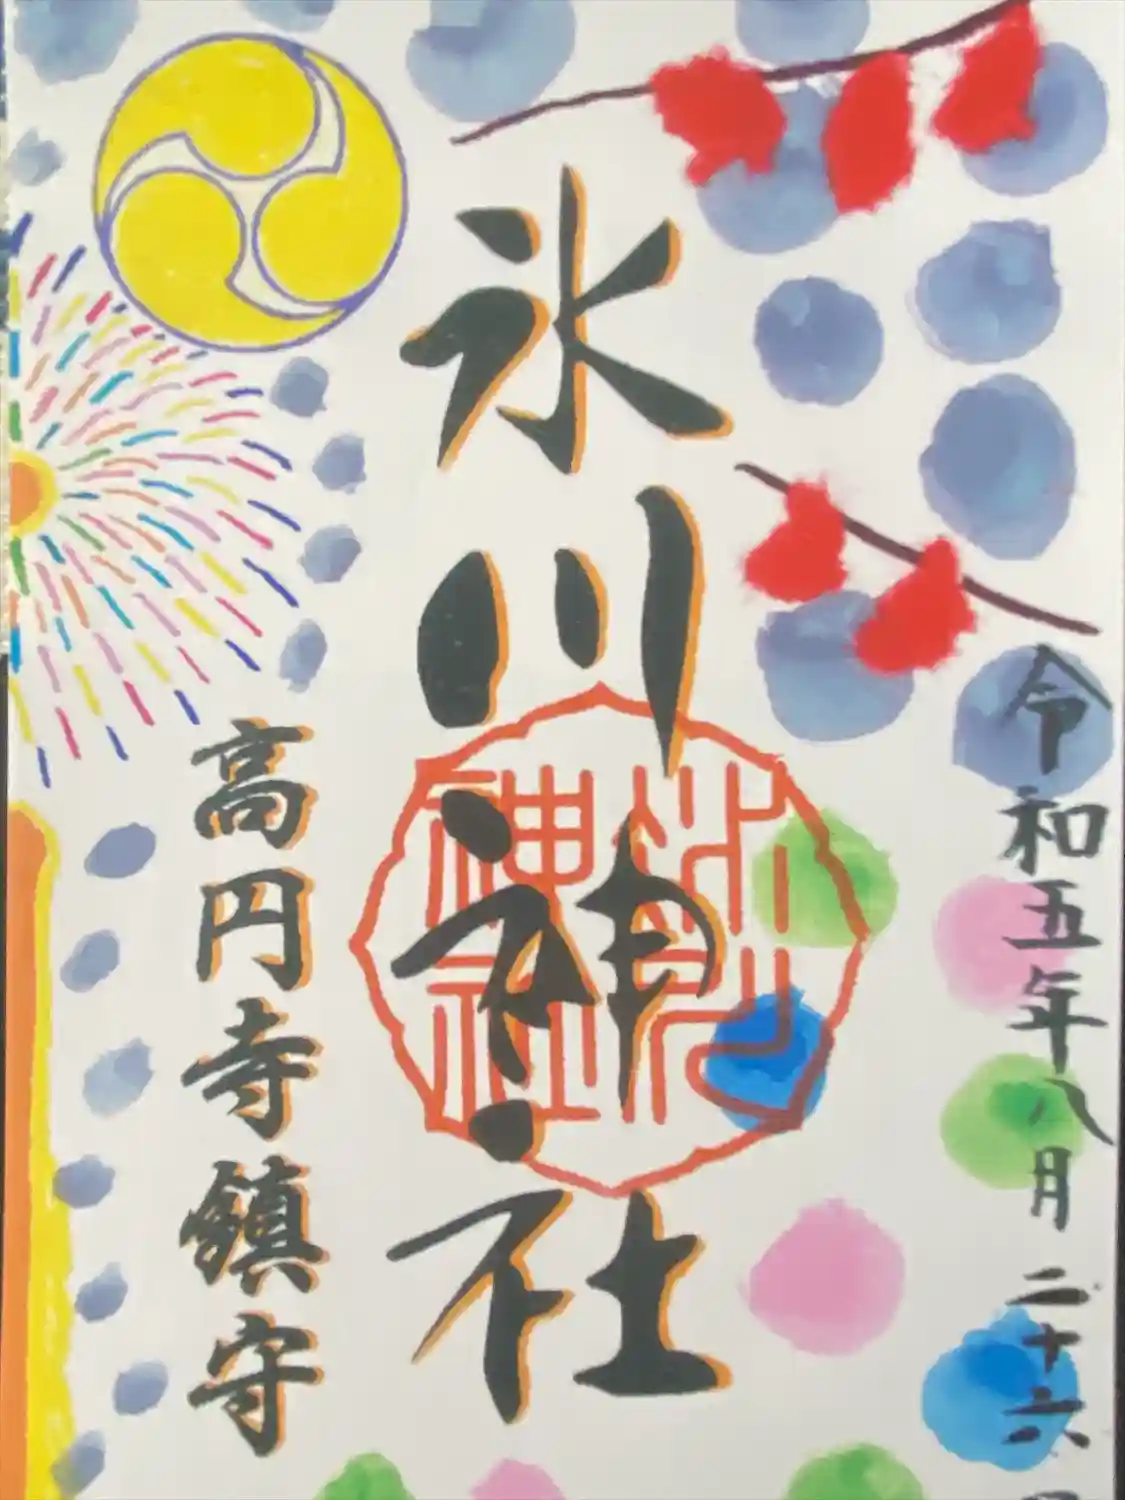 令和五年八月二十六日
氷川神社
氷川神社
高円寺鎮守